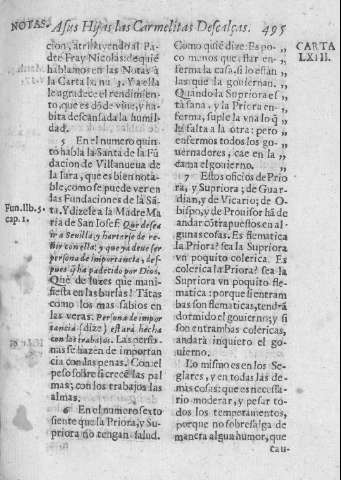 NOTAS. A sus Hijas las Carmelitas Descalças. 495
cion, atribuyendo al Pa-
dre Fray Nicolas: de quiẽ
hablamos en las Notas à
la Carta lx. nu. 3. Y a ella
le agradece el rendimien-
to, que es dõde vive, y ha-
bita descansada la humil-
dad.
5 En el numero quin-
to habla la Santa de la Fũ-
dacion de Villanueva de
la Iara, que es bien nota-
ble, como se puede ver en
las Fundaciones de la Sã-
Fun. lib. 5.
cap. 1.
ta. Y dizele a la Madre Ma-
ria de San Iosef: Que desea
ir a Sevilla; y hartarse de re-
ñir con ella; y que ya deve ser
persona de importancia, des-
pues q̃ ha padetido por Dios.
Què de luzes que mani-
fiesta en las burlas! Tãtas
como los mas sabios en
las veras. Persona de impor-
tancia (dize) estarà hecha
con los trabajos. Las perso-
nas se hazen de importan
cia con las penas. Con el
peso sobre si crecẽ las pal
mas; con los trabajos las
almas.
6 En el numero sexto
siente que la Priora, y Su-
priora no tengan salud.
CARTA
LXIII.
Como quiẽ dize: Es po- ,,
co menos que estar en- ,,
ferma la casa, si lo estàn ,,
las que la goviernan. ,,
Quando la Supriora es ,,
tà sana, y la Priora en- ,,
ferma, suple la vna lo q̃ ,,
le falta a la otra; pero ,,
enfermos todos los go- ,,
vernadores, cae en la ,,
cama el govierno. ,,
7 Estos oficios de Prio
ra, y Supriora; de Guar-
dian, y de Vicario; de O-
bispo, y de Provisor hã de
andar cõtrapuestos en al-
gunas cosas. Es flematica
la Priora? sea la Supriora
vn poquito colerica. Es
colerica la Priora? sea la
Supriora vn poquito fle-
matica: porque si entram
bas son flematicas, tendrà
dormido el govierno; y si
son entrambas colericas,
andarà inquieto el go-
vierno.
Lo mismo es en los Se-
glares, y en todas las de-
mas cosas: que es necessa-
rio moderar, y pesar to-
dos los temperamentos,
porque no sobresalga de
manera algun humor, que
cau-